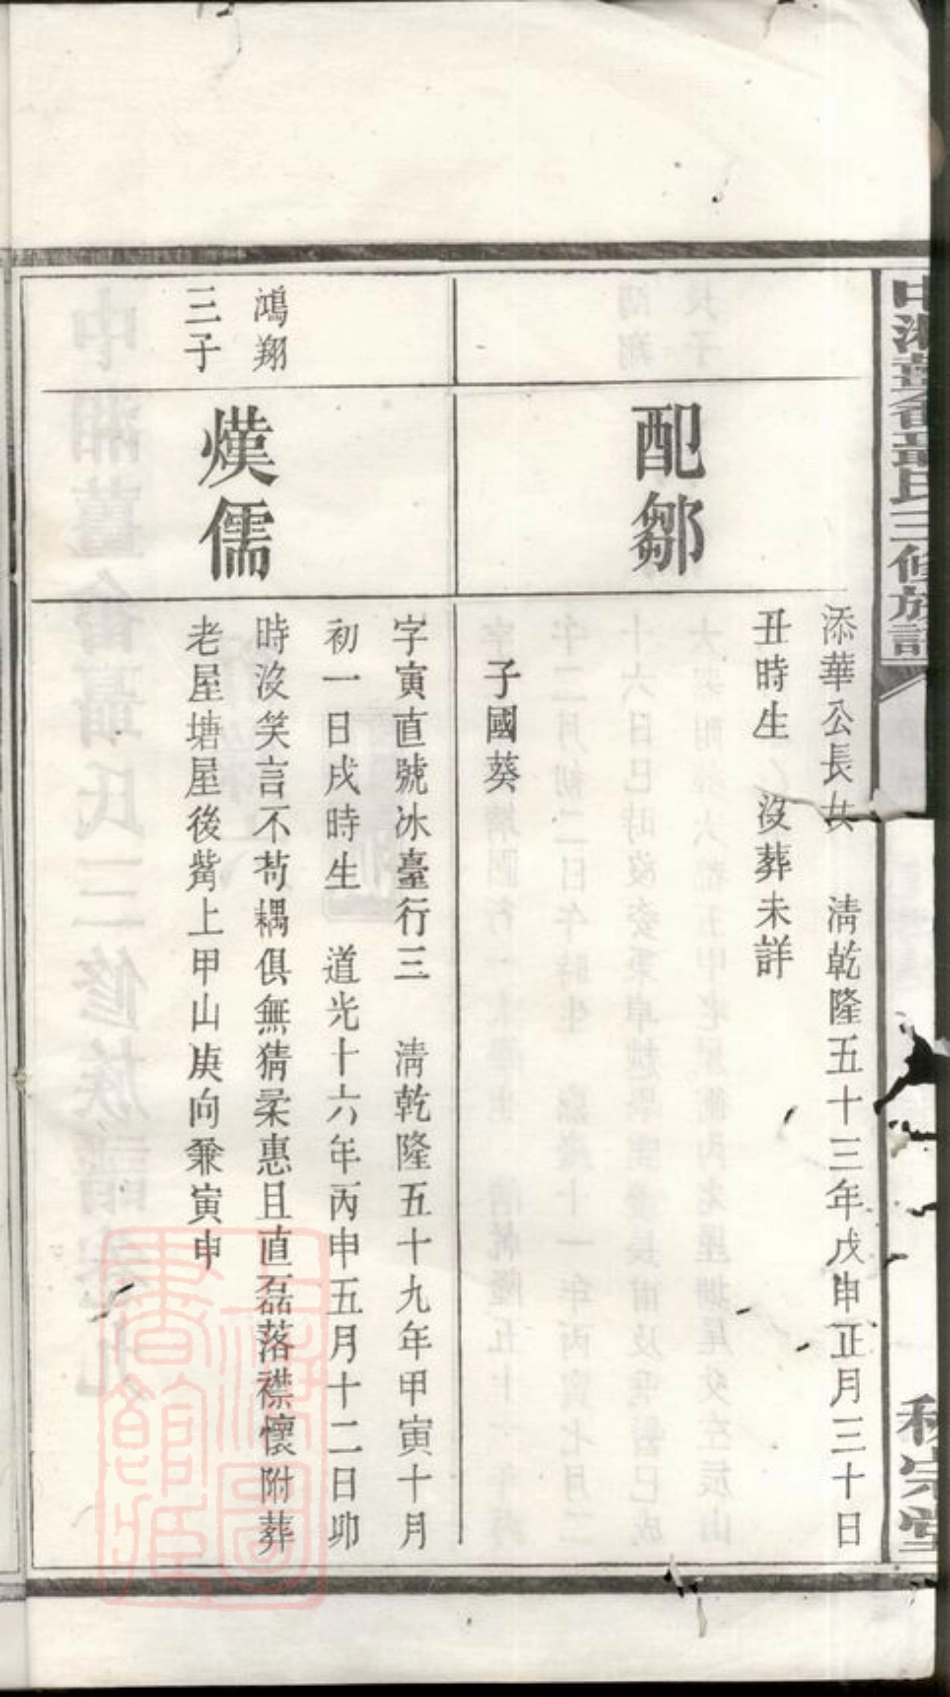 三修族譜
配鄒
添華公長女 清乾隆五十三年戊申正月三十日
丑時生 沒葬未詳
子國葵
鴻翔
三子
熯儒
字寅直號冰臺行三 清乾隆五十九年甲寅十月
初一日戌時生 道光十六年丙申五月十二日卯
時沒笑言不苟耦俱無猜柔惠且直磊落襟懷附葬
老屋塘屋後觜上甲山庚向兼寅申